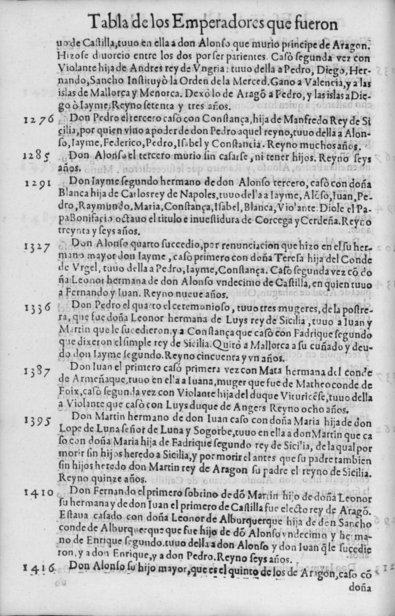 Tabla de los Emperadores que fueron
uo de Castilla, tuuo en ella a don Alonso que murio principe de Aragon.
Hizose diuorcio entre los dos por ser parientes. Casò segunda vez con
Violante hija de Andres rey de Vngria: tuuo della a Pedro, Diego, Her-
nando, Sancho Instituyò la Orden de la Merced. Gano a Valencia, y a las
islas de Mallorca y Menorca. Dexòlo de Aragõ a Pedro, y las islas a Die-
go ò Iayme. Reyno setenta y tres años.
1276 Don Pedro el tercero casò con Constança, hija de Manfredo Rey de Si
cilia, por quien vino a poder de don Pedro aquel reyno, tuuo della a Alon-
so, Iayme, Federico, Pedro, Isabel y Constancia. Reyno muchos años.
1285 Don Alonso el tercero murio sin casarse, ni tener hijos. Reyno seys
años.
1291 Don Iayme segundo hermano de don Alonso tercero, casò con doña
Blanca hija de Carlos rey de Napoles, tuuo della a Iayme, Alõso, Iuan, Pe-
dro, Raymundo, Maria, Constança, Isabel, Blanca, Violante. Diole el Pa
pa Bonifacio octauo el titulo e inuestidura de Corcega y Cerdeña. Reyno
treynta y seys años.
1327 Don Alonso quarto succedio, por renunciacion que hizo en el su her-
mano mayor don Iayme, casò primero con doña Teresa hija del Conde
de Vrgel, tuuo della a Pedro, Iayme, Constança. Casò segunda vez cõ do
ña Leonor hermana de don Alonso vndecimo de Castilla, en quien tuuo
a Fernando y Iuan. Reyno nueue años.
1336 Don Pedro el quarto el ceremonioso, tuuo tres mugeres, de la postre-
ra, que fue doña Leonor hermana de Luys rey de Sicilia, tuuo a Iuan y
Martin que le sucedieron, y a Constança que casò con Fadrique segundo
que dixeron el simple rey de Sicilia. Quitò a Mallorca a su cuñado y deu-
do don Iayme segundo. Reyno cincuenta y vn años.
1387 Don Iuan el primero casò primera vez con Mata hermana del conde
de Armeñaque, tuuo en ella a Iuana, muger que fue de Matheo conde de
Foix, casò segunda vez con Violante hija del duque Vituricẽse, tuuo della
a Violante que casò con Luys duque de Angers Reyno ocho años.
1395 Don Martin hermano de don Iuan casò con doña Maria hija de don
Lope de Luna señor de Luna y Sogorbe, tuuo en ella a don Martin que ca
sò con doña Maria hija de Fadrique segundo rey de Sicilia, de la qual por
morir sin hijos heredo a Sicilia, y por morir el antes que su padre tambien
sin hijos heredo don Martin rey de Aragon su padre el reyno de Sicilia.
Reyno quinze años.
1410 Don Fernando el primero sobrino de dõ Martin hijo de doña Leonor
su hermana y de don Iuan el primero de Castilla fue electo rey de Aragõ.
Estaua casado con doña Leonor de Alburquerque hija de don Sancho
conde de Alburquerque que fue hijo de dõ Alonso vndecimo y herma-
no de Enrique segundo. tuuo della a don Alonso y don Iuan q̃ le sucedie
ron, y a don Enrique, y a don Pedro. Reyno seys años.
1416 Don Alonso su hijo mayor, que es el quinto de los de Aragon, caso cõ
doña